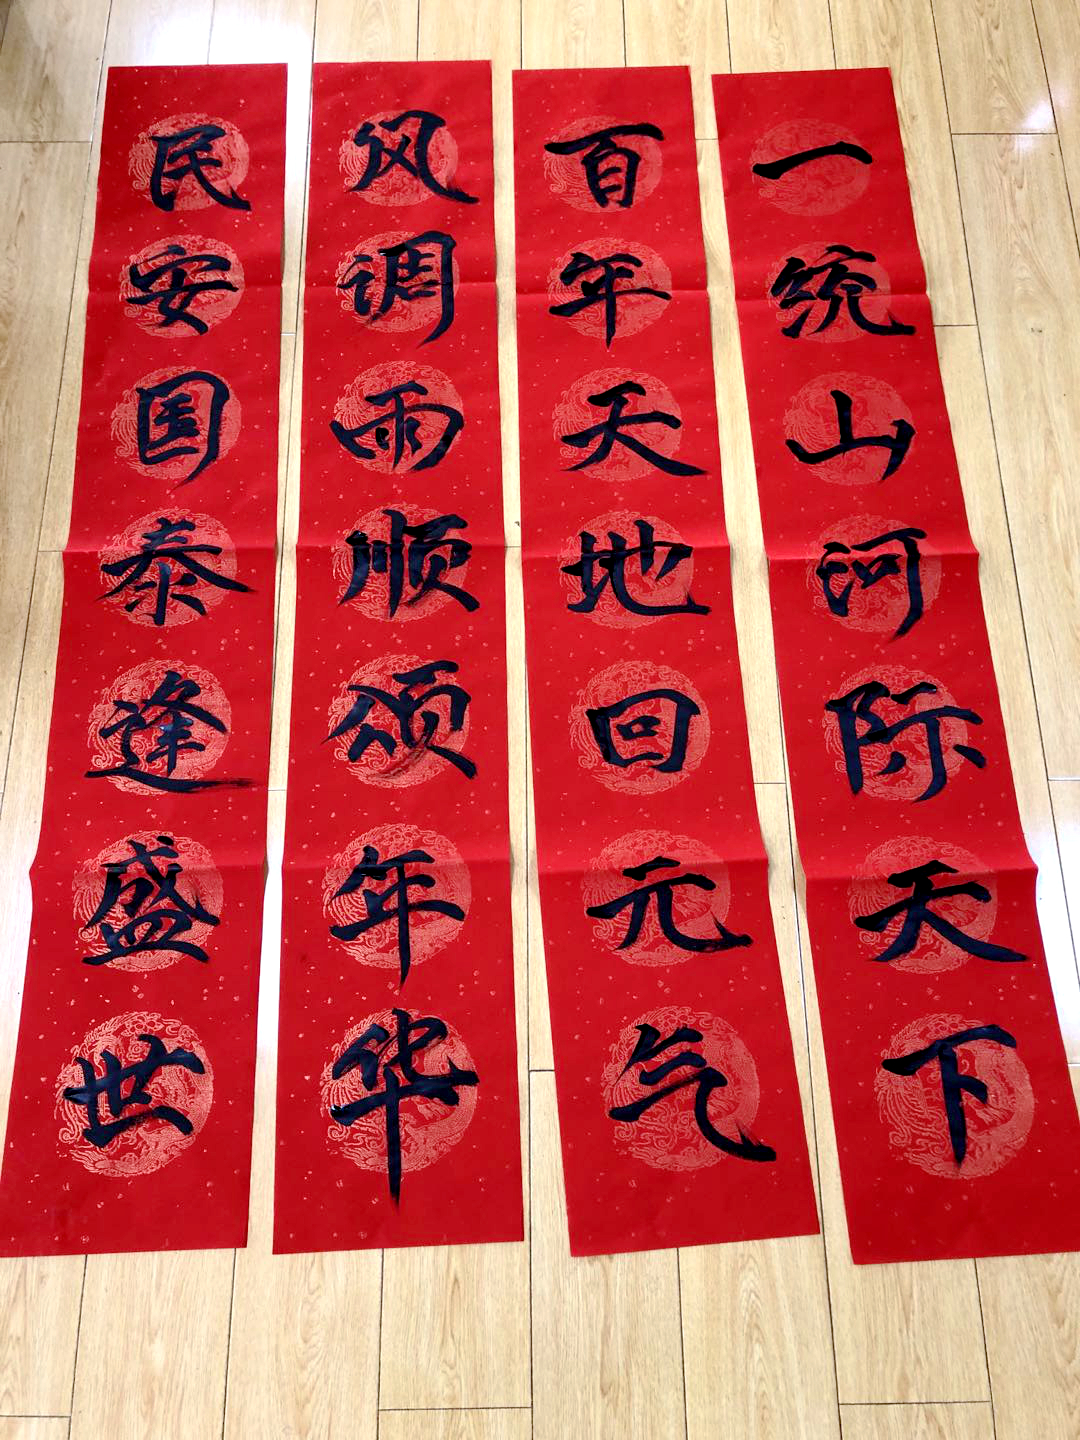 一统山河际天下
百年天地回元气
风调雨顺颂年华
民安国泰逢盛世